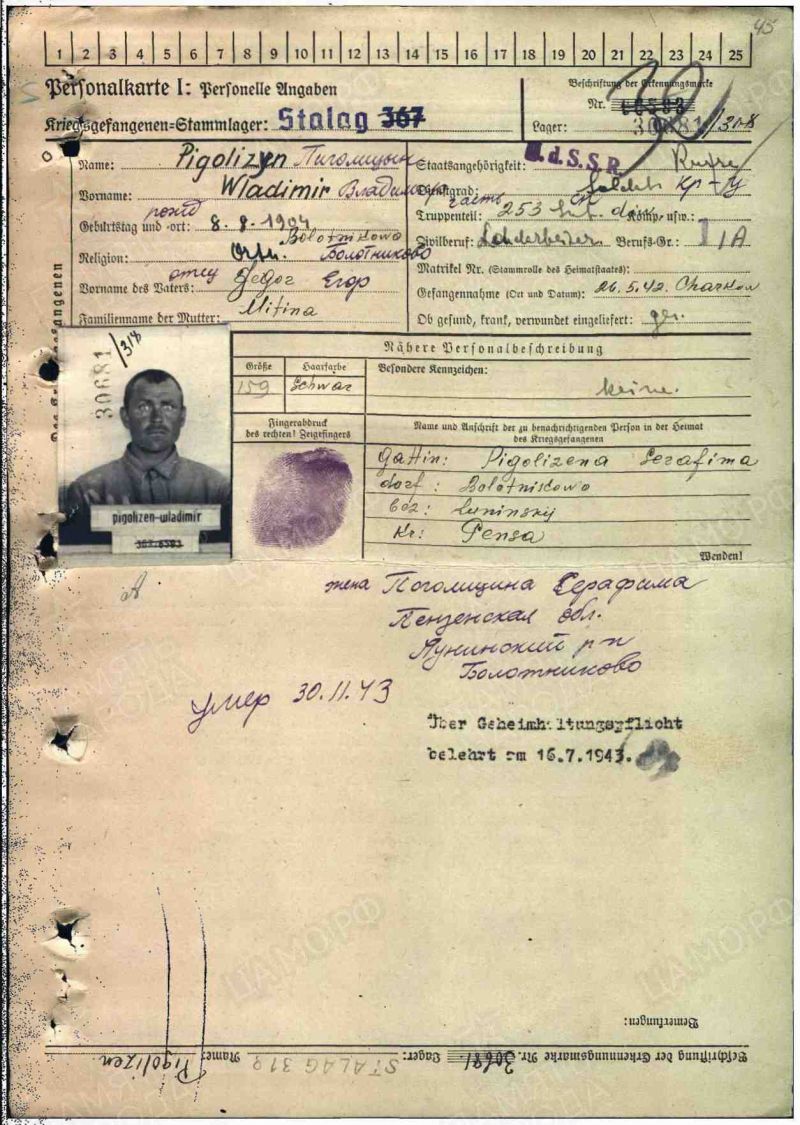 45
1 2 3 4 5 6 7 8 9 10 11 12 13 14 15 16 17 18 19 20 21 22 23 24 25
Personalkarte I: Personelle Angaben
Beschriftung der Erkennungsmarke
Nr.
Kriegsgefangenen=Stammlager: Stalag 367
Lager: 30681/318
Name: Pigolizyn Пиголицын
Staatsangehörigkeit: U.d.S.S.R. Russe
Vorname: Wladimir Владимир
Dienstgrad: Soldat кр-ц
рожд
часть сп
Geburtstag und -ort: 8.8.1904
Truppenteil: 253 Inf. div Komp. usw.:
Bolotnikowo
Religion: Orth. Болотниково
Zivilberuf: Landarbeiter Berufs-Gr.: IA
отец
Matrikel Nr. (Stammrolle des Heimatstaates):
Vorname des Vaters: Jegor Егор
Gefangennahme (Ort und Datum): 26.5.42. Charkow
Familienname der Mutter: Mitina
Ob gesund, krank, verwundet eingeliefert: ges.
Nähere Personalbeschreibung
Größe Haarfarbe Besondere Kennzeichen:
159 Schwarz keine.
Fingerabdruck
des rechten! Zeigefingers
Name und Anschrift der zu benachrichtigenden Person in der Heimat
des Kriegsgefangenen
Gattin: Pigolizena Serafima
dorf: Bolotnikowo
Bez: Luninskij
Kr: Pensa
Wenden!
30681/318
pigolizen-wladimir
жена Поголицина Серафима
Пензенская обл.
Лунинский р-н
Болотниково
умер 30.11.43
Über Geheimhaltungspflicht
belehrt am 16.7.1943.
Bemerkungen:
Beschriftung der Erkennungsmarke Nr. 30681. Lager: STALAG 318 Name: Pigolizen
ЦАМО.РФ